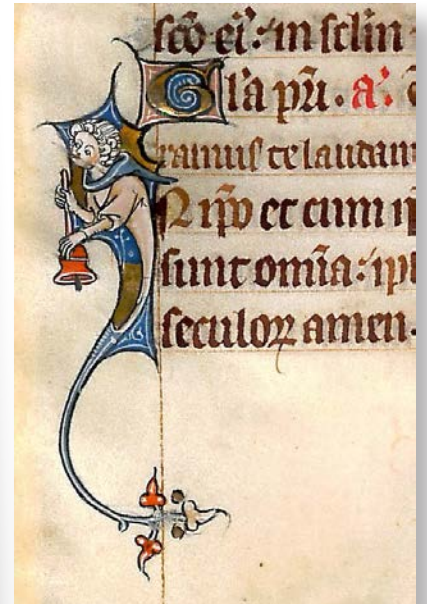 scō ei᷒ : in sclm
Gl'a pri . a'.
ramus te laudam
N ip̄o et cum ip
sunt om̄ia : ip
seculoꝝ amen.